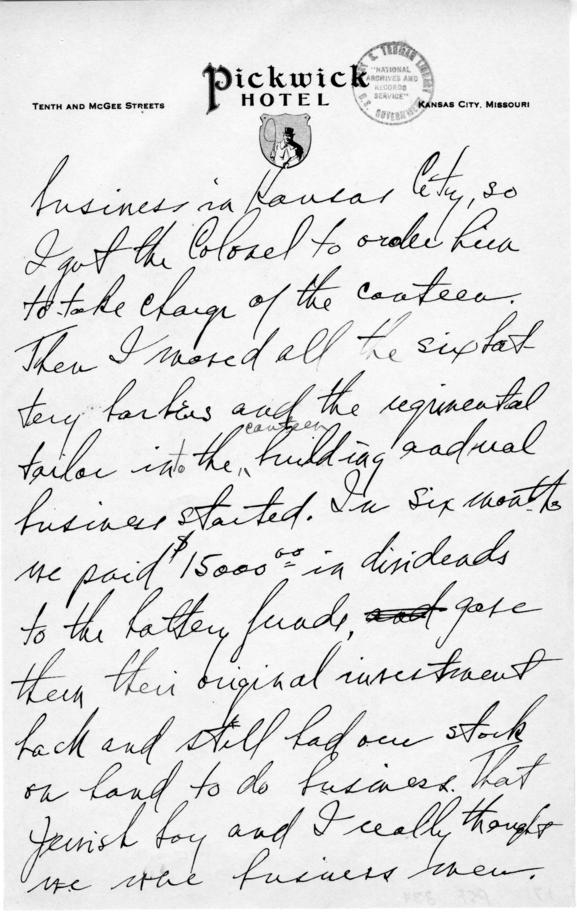 Pickwick
HOTEL
TENTH AND MCGEE STREETS
KANSAS CITY, MISSOURI
HARRY S. TRUMAN LIBRARY
"NATIONAL
ARCHIVES AND
RECORDS
SERVICE"
U.S. GOVERNMENT
business in Kansas City, so
I got the Colonel to order him
to take charge of the canteen.
Then I moved all the six bat
tery barbers and the regimental
tailor into the canteen building and real
business started. In six months
we paid $15000.00 in dividends
to the battery funds, and gave
them their original investment
back and still had our stock
on hand to do business. That
Jewish boy and I really thought
we were business men.